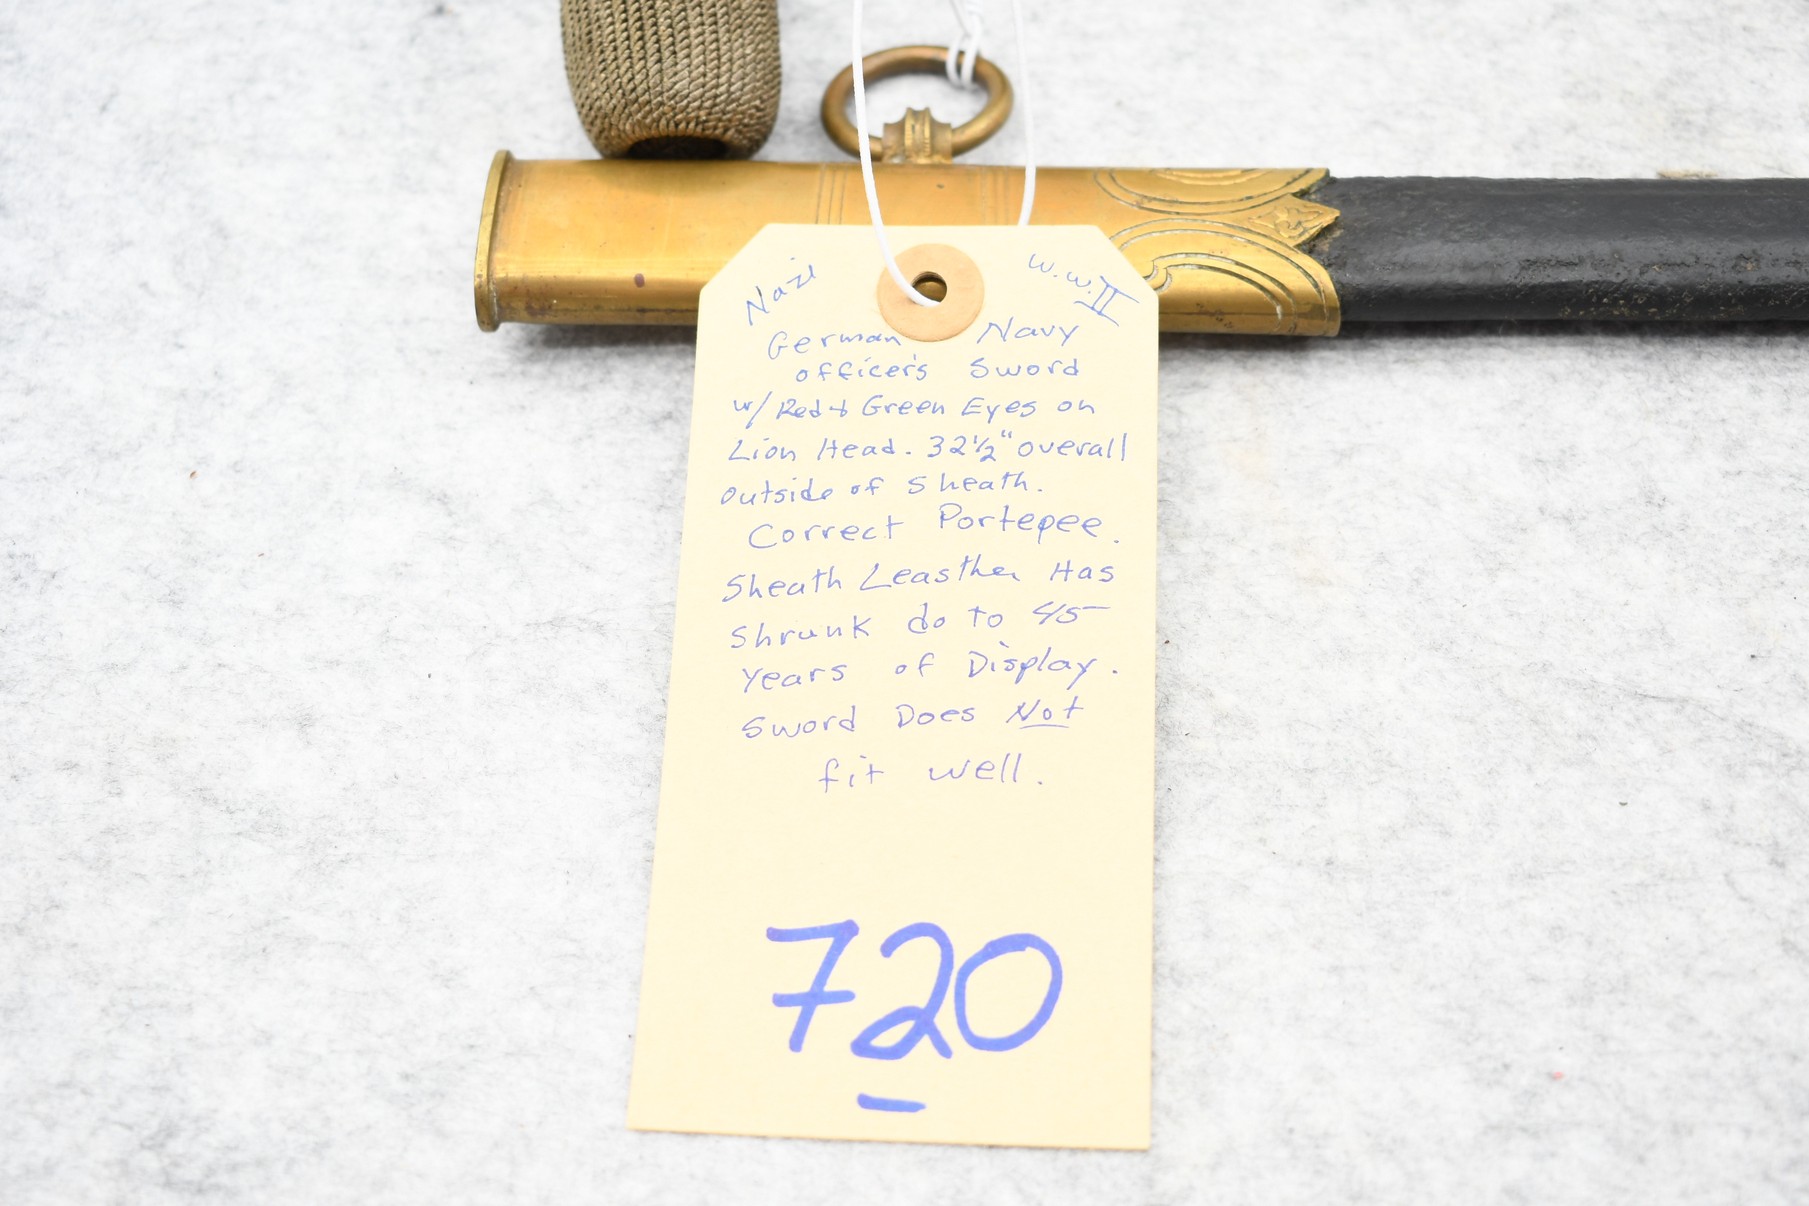 Nazi W.W.II
German Navy
officer's Sword
w/ Red & Green Eyes on
Lion Head. 32 1/2" overall
outside of sheath.
Correct Portepee.
Sheath Leasther Has
Shrunk do to 45
years of Display.
Sword Does Not
fit well.
720